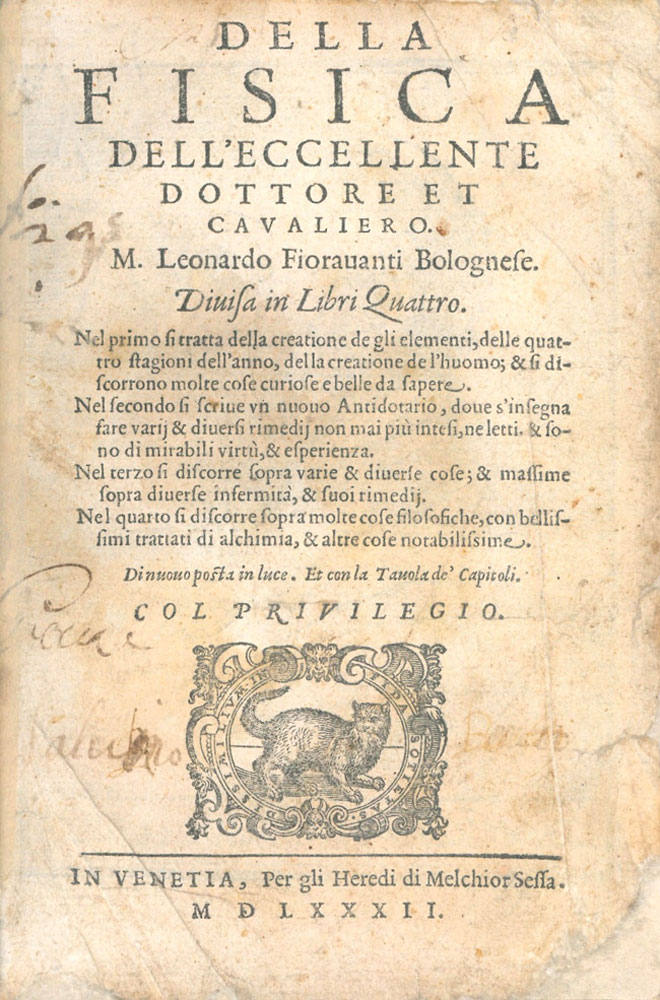 DELLA
FISICA
DELL'ECCELLENTE
DOTTORE ET
CAVALIERO.
M. Leonardo Fiorauanti Bologneſe.
Diuiſa in Libri Quattro.
Nel primo ſi tratta della creatione de gli elementi, delle quat-
tro ſtagioni dell'anno, della creatione de l'huomo; & ſi di-
ſcorrono molte coſe curioſe e belle da ſapere.
Nel ſecondo ſi ſcriue vn nuouo Antidotario, doue s'inſegna
fare varij & diuerſi rimedij non mai più inteſi, ne letti. & ſo-
no di mirabili virtù, & eſperienza.
Nel terzo ſi diſcorre ſopra varie & diuerſe coſe; & maſſime
ſopra diuerſe infermità, & ſuoi rimedij.
Nel quarto ſi diſcorre ſopra molte coſe filoſofiche, con belliſ-
ſimi trattati di alchimia, & altre coſe notabiliſſime.
Di nuouo poſta in luce. Et con la Tauola de' Capitoli.
COL PRIVILEGIO.
DISSIMILIUM INFIDA SOTIETS
IN VENETIA, Per gli Heredi di Melchior Seſſa.
M D LXXXII.